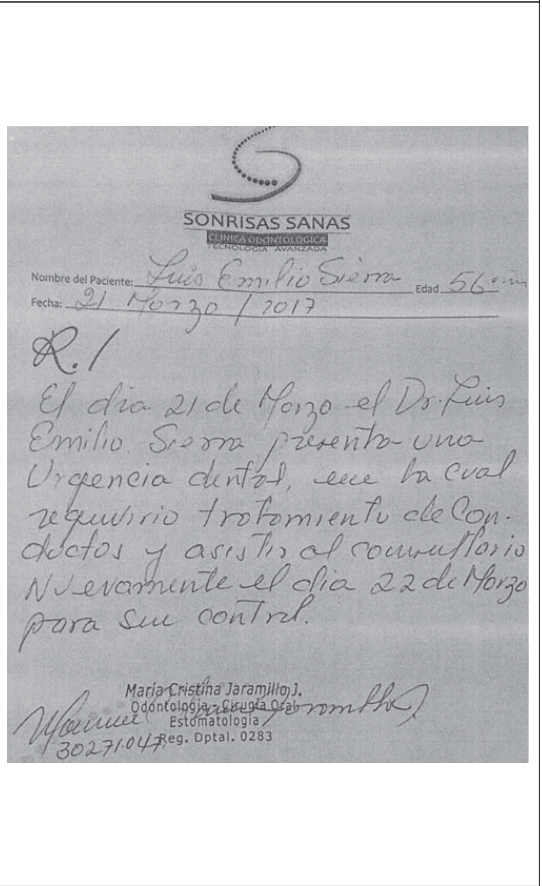 SONRISAS SANAS
CLINICA ODONTOLOGICA
TECNOLOGIA AVANZADA
Nombre del Paciente: Luis Emilio Sierra Edad 56 años
Fecha: 21 Marzo / 2017
R./
El dia 21 de Marzo el Dr. Luis
Emilio Sierra presenta una
Urgencia dental, en la cual
requirio tratamiento de Con-
ductos y asistir al consultorio
Nuevamente el dia 22 de Marzo
para su control.
María Cristina Jaramillo J.
Odontología - Cirugía Oral
Estomatología
30271.047 Reg. Dptal. 0283